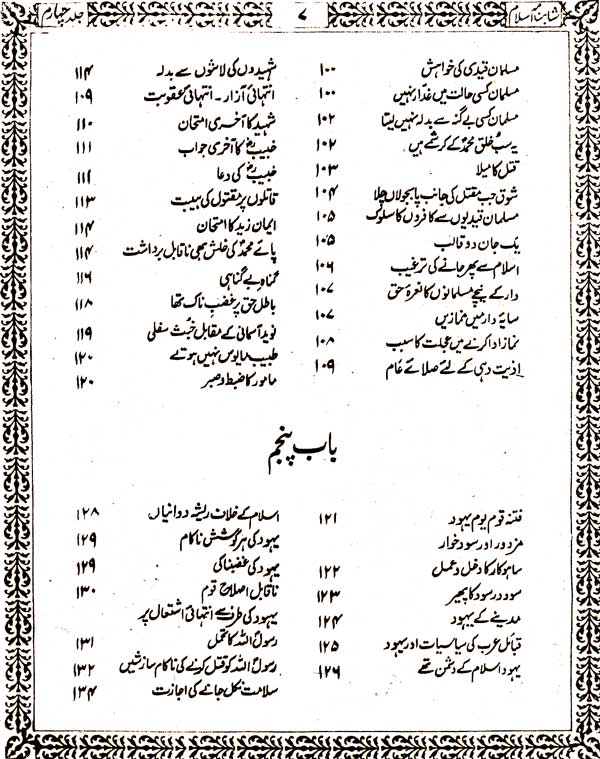 شاہنامہ اسلام
۷
جلد چہارم
مسلمان قیدی کی خواہش ۱۰۰
مسلمان کسی حالت میں غدار نہیں ۱۰۰
مسلمان کسی بے گنہ سے بدلہ نہیں لیتا ۱۰۲
یہ سب خلق محمدؐ کے کرشمے ہیں ۱۰۲
قتل کا میلا ۱۰۳
شوق جب مقتل کی جانب پابجولاں چلا ۱۰۴
مسلمان قیدیوں سے کافروں کا سلوک ۱۰۵
یک جان دو قالب ۱۰۵
اسلام سے پھر جانے کی ترغیب ۱۰۶
دار کے نیچے مسلمانوں کا نعرۂ حق ۱۰۷
سایۂ دار میں نمازیں ۱۰۷
نماز ادا کرنے میں عجلت کا سبب ۱۰۸
اذیت دہی کے لئے صلائے عام ۱۰۹
شہیدوں کی لاشوں سے بدلہ ۱۱۴
انتہائی آزار ۔ انتہائی عقوبت ۱۰۹
شہید کا آخری امتحان ۱۱۰
خبیبؓ کا آخری جواب ۱۱۱
خبیبؓ کی دعا ۱۱۱
قاتلوں پر مقتول کی ہیبت ۱۱۳
ایمان زید کا امتحان ۱۱۴
پائے محمدؐ کی خلش بھی ناقابل برداشت ۱۱۴
گناہ بے گناہی ۱۱۶
باطل حق پر غضب ناک تھا ۱۱۸
نوید آسمانی کے مقابل خبث سفلی ۱۱۹
طبیب مایوس نہیں ہوتے ۱۲۰
مامور کا ضبط و صبر ۱۲۰
باب پنجم
فتنہ قوم یوم یہود ۱۲۱
مزدور اور سود خوار
ساہوکار کا دخل و عمل ۱۲۲
سود در سود کا پھیر ۱۲۳
مدینے کے یہود ۱۲۴
قبائل عرب کی سیاسیات اور یہود ۱۲۵
یہود اسلام کے دشمن تھے ۱۲۶
اسلام کے خلاف ریشہ دوانیاں ۱۲۸
یہود کی ہر کوشش ناکام ۱۲۹
یہود کی غضبناکی ۱۲۹
ناقابل اصلاح قوم ۱۳۰
یہود کی طرف سے انتہائی اشتعال پر
رسولؐ اللہ کا تحمل ۱۳۱
رسولؐ اللہ کو قتل کرنے کی ناکام سازشیں ۱۳۲
سلامت نکل جانے کی اجازت ۱۳۴